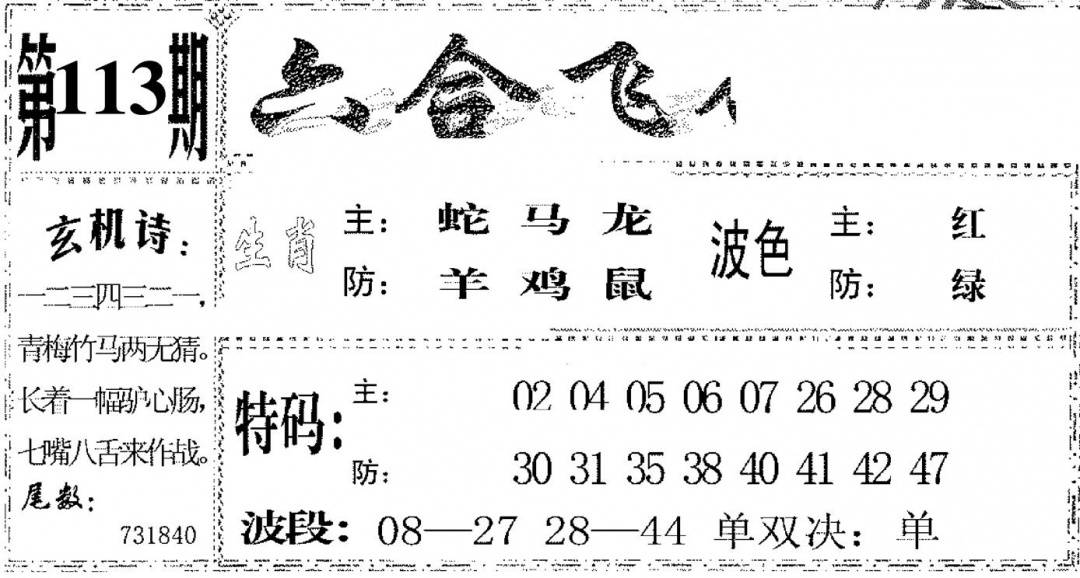 第113期
六合飞
玄机诗：
一二三四三二一，
青梅竹马两无猜。
长着一幅驴心肠，
七嘴八舌来作战。
尾数：
731840
生肖
主： 蛇 马 龙
防： 羊 鸡 鼠
波色
主： 红
防： 绿
特码：
主： 02 04 05 06 07 26 28 29
防： 30 31 35 38 40 41 42 47
波段：08—27 28—44 单双决：单